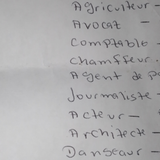 Agriculteur -
Avocat -
Comptable -
Chauffeur -
Agent de po
Journaliste -
Acteur -
Architecte -
Danseur -